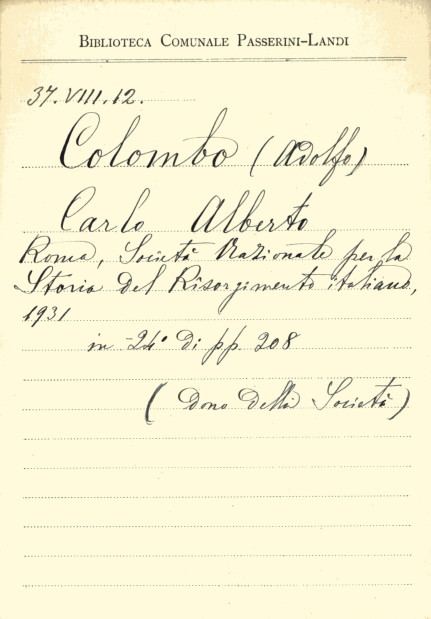 BIBLIOTECA COMUNALE PASSERINI-LANDI
37.VIII.12.
Colombo (Adolfo)
Carlo Alberto
Roma, Società Nazionale per la
Storia del Risorgimento italiano,
1931
in -24° di pp. 208
(Dono della Società)